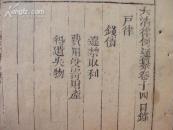 大清律例通纂卷十四目錄
戶律
錢債
違禁取利
費用受寄財產
得遺失物